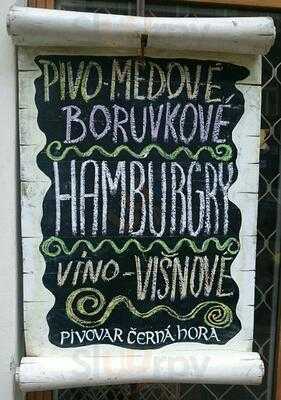 PIVO-MEDOVÉ
BORUVKOVÉ
HAMBURGRY
VÍNO-VIŠŇOVÉ
PIVOVAR ČERNÁ HORA
Sluurpy